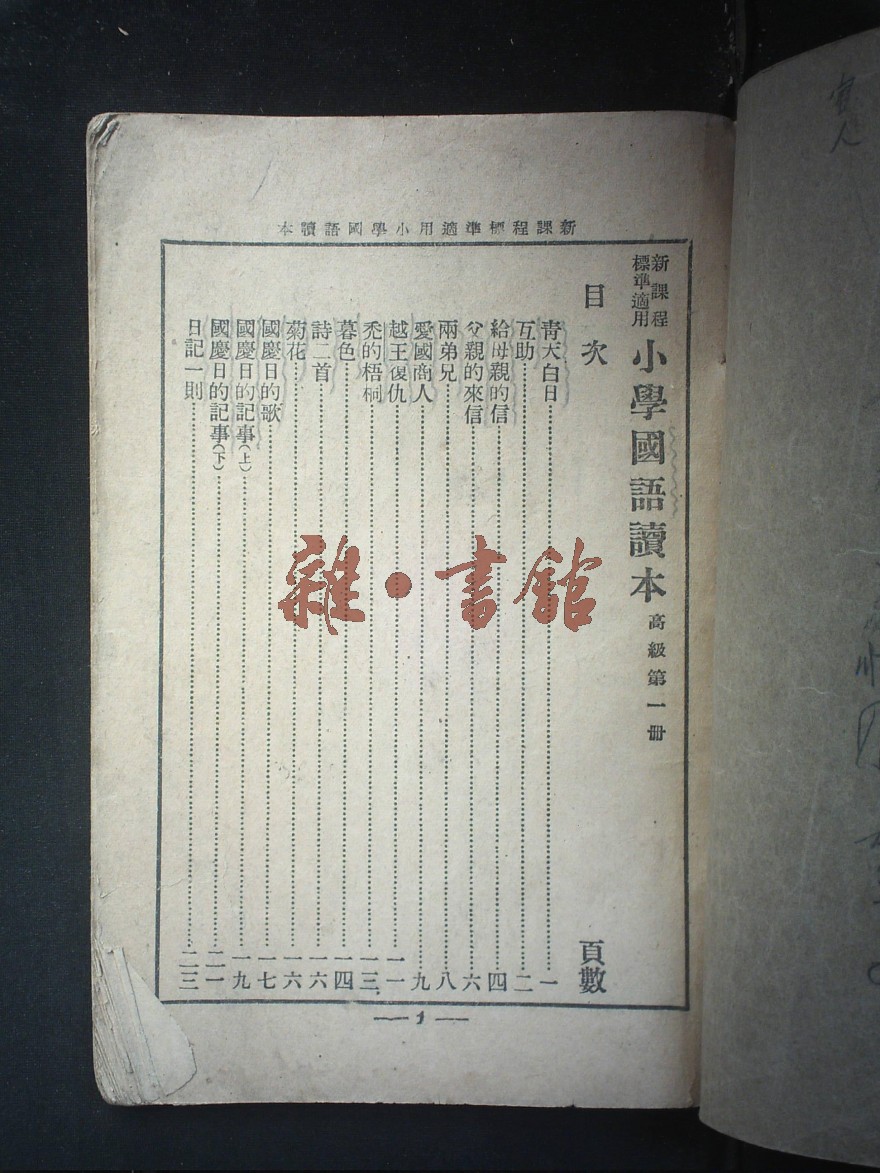 新課程標準適用小學國語讀本
新課程標準適用
小學國語讀本 高級第一册
目次 頁數
青天白日 一
互助 二
給母親的信 四
父親的來信 六
兩弟兄 八
愛國商人 九
越王復仇 一一
禿的梧桐 一三
暮色 一四
詩二首 一六
菊花 一六
國慶日的歌 一七
國慶日的記事(上) 一九
國慶日的記事(下) 二一
日記一則 二三
1
雜·書館